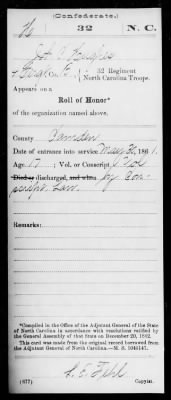 (Confederate.)
H 32 N. C.
Hughes
32 Regiment
North Carolina Troops.
Appears on a
Roll of Honor*
of the organization named above.
County Camden
Date of entrance into service May 30, 1861.
Age 17; Vol. or Conscript Vol
Died or discharged, and when by Con-
script Law.
Remarks:
*Compiled in the Office of the Adjutant General of the State
of North Carolina in accordance with resolutions ratified by
the General Assembly of that State on December 20, 1862.
This card was made from the original record borrowed from
the Adjutant General of North Carolina.—M. S. 1046147.
(677) Copyist.